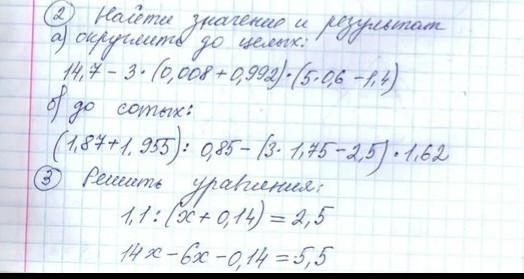 ② Найти значение и результат
а) округлить до целых:
14,7 - 3 · (0,008 + 0,992) · (5 · 0,6 - 1,4)
б) до сотых:
(1,87 + 1,955) : 0,85 - (3 · 1,75 - 2,5) · 1,62
③ Решить уравнения:
1,1 : (x + 0,14) = 2,5
14x - 6x - 0,14 = 5,5